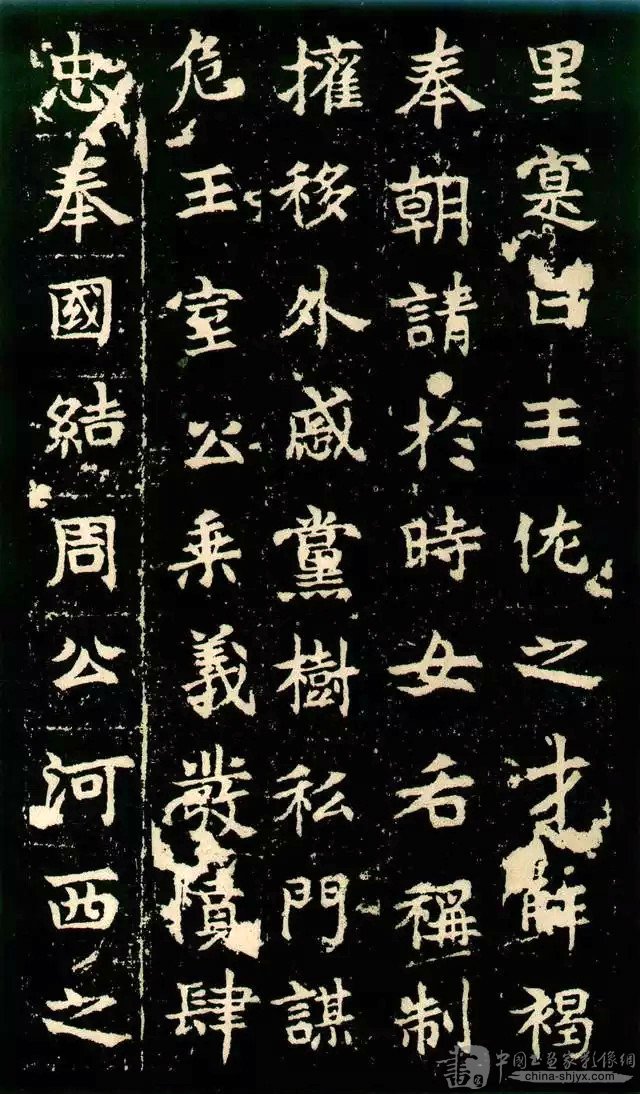 里寔曰王佐之才解褐
奉朝請於時女后稱制
擁移外戚黨樹私門謀
危王室公乗義發憤肆
忠奉國結周公河西之
中國書畫家影像網
china-shjyx.com